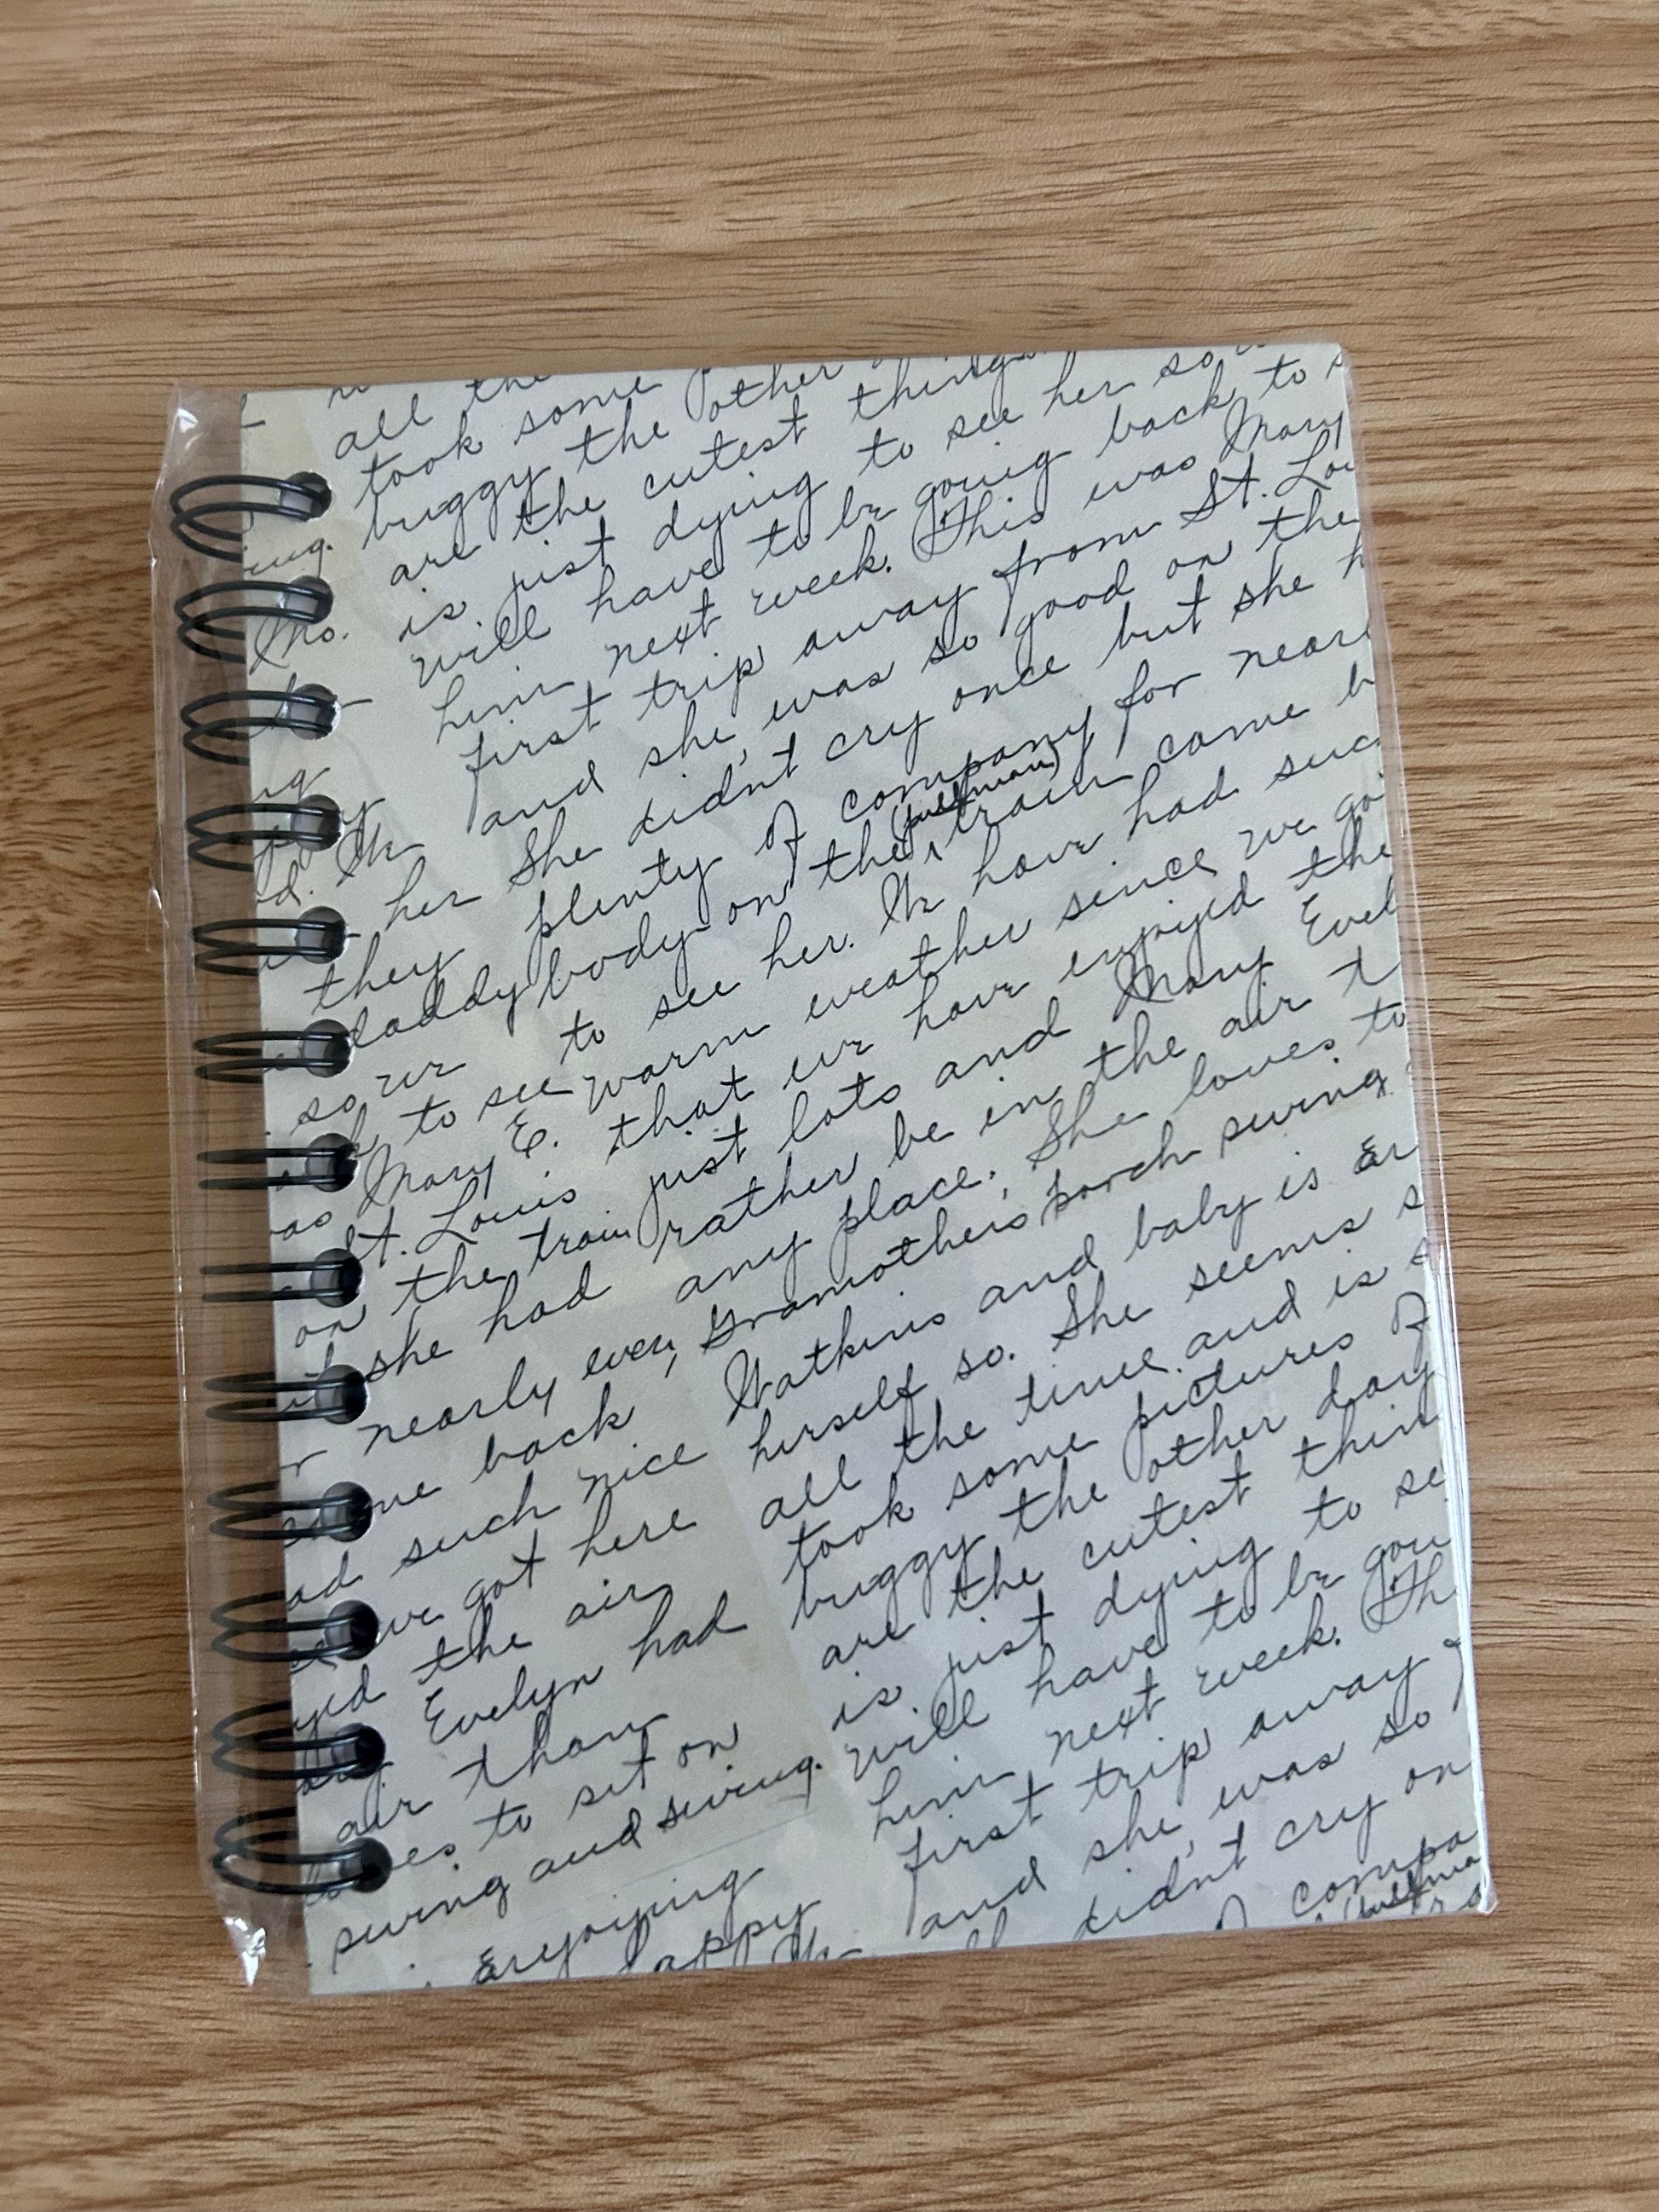 all the
took some
buggy the other
are the cutest things
is just dying to see her so
will have to be going back to
Mo. him next week. This was Mary
first trip away from St. Lou
and she was so good on the
her She didn't cry once but she h
they plenty of company for near
daddy body on the (pullman) train came b
so we to see her. We have had suc
to see warm weather since we go
was Mary E. that we have enjoyed the
St. Louis just lots and Mary Evel
on the train rather be in the air t
she had any place. She loves to
nearly every Gramothers porch swing
came back Watkins and baby is Er
ad such nice herself so. She seems s
we got here all the time and is s
yed the air took some pictures of
Evelyn had buggy the other day
air than are the cutest thin
to sit on is just dying to se
swing and swing. will have to be goi
Enjoying him next week. Thi
happy first trip away
and she was so
didn't cry on
compa